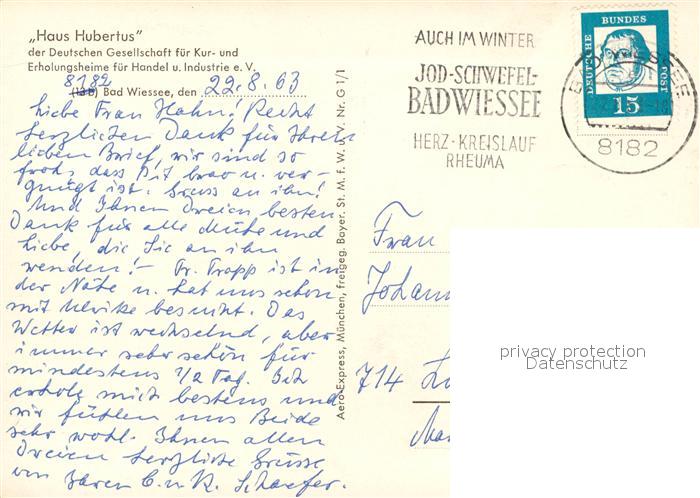 „Haus Hubertus"
der Deutschen Gesellschaft für Kur- und
Erholungsheime für Handel u. Industrie e. V.
8182
(13b) Bad Wiessee, den 22.8.63
Liebe Frau Hahn! Recht
herzlichen Dank für Ihren
lieben Brief, wir sind so
froh, dass Pit brav u. ver-
gnügt ist. Gruss an ihn!
Und Ihnen Dreien besten
Dank für alle Mühe und
Liebe, die Sie an ihn
wenden! – Fr. Trapp ist in
der Nähe u. hat uns schon
mit Ulrike besucht. Das
Wetter ist wechselnd, aber
immer sehr schön für
mindestens 1/2 Tag. Ich
erhole mich bestens und
wir fühlen uns Beide
sehr wohl. Ihnen allen
Dreien herzliche Grüsse
von Ihren C. u. R. Schaefer.
Aero-Express, München, freigeg. Bayer. St. M. f. W. u. V. Nr. G 1/1
AUCH IM WINTER
JOD-SCHWEFEL-
BAD WIESSEE
HERZ-KREISLAUF
RHEUMA
DEUTSCHE BUNDES POST
15
BAD WIESSEE
8182
Frau
Johann
714
privacy protection
Datenschutz